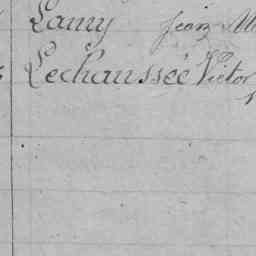 Lamy Jean
Lechaussée Victor